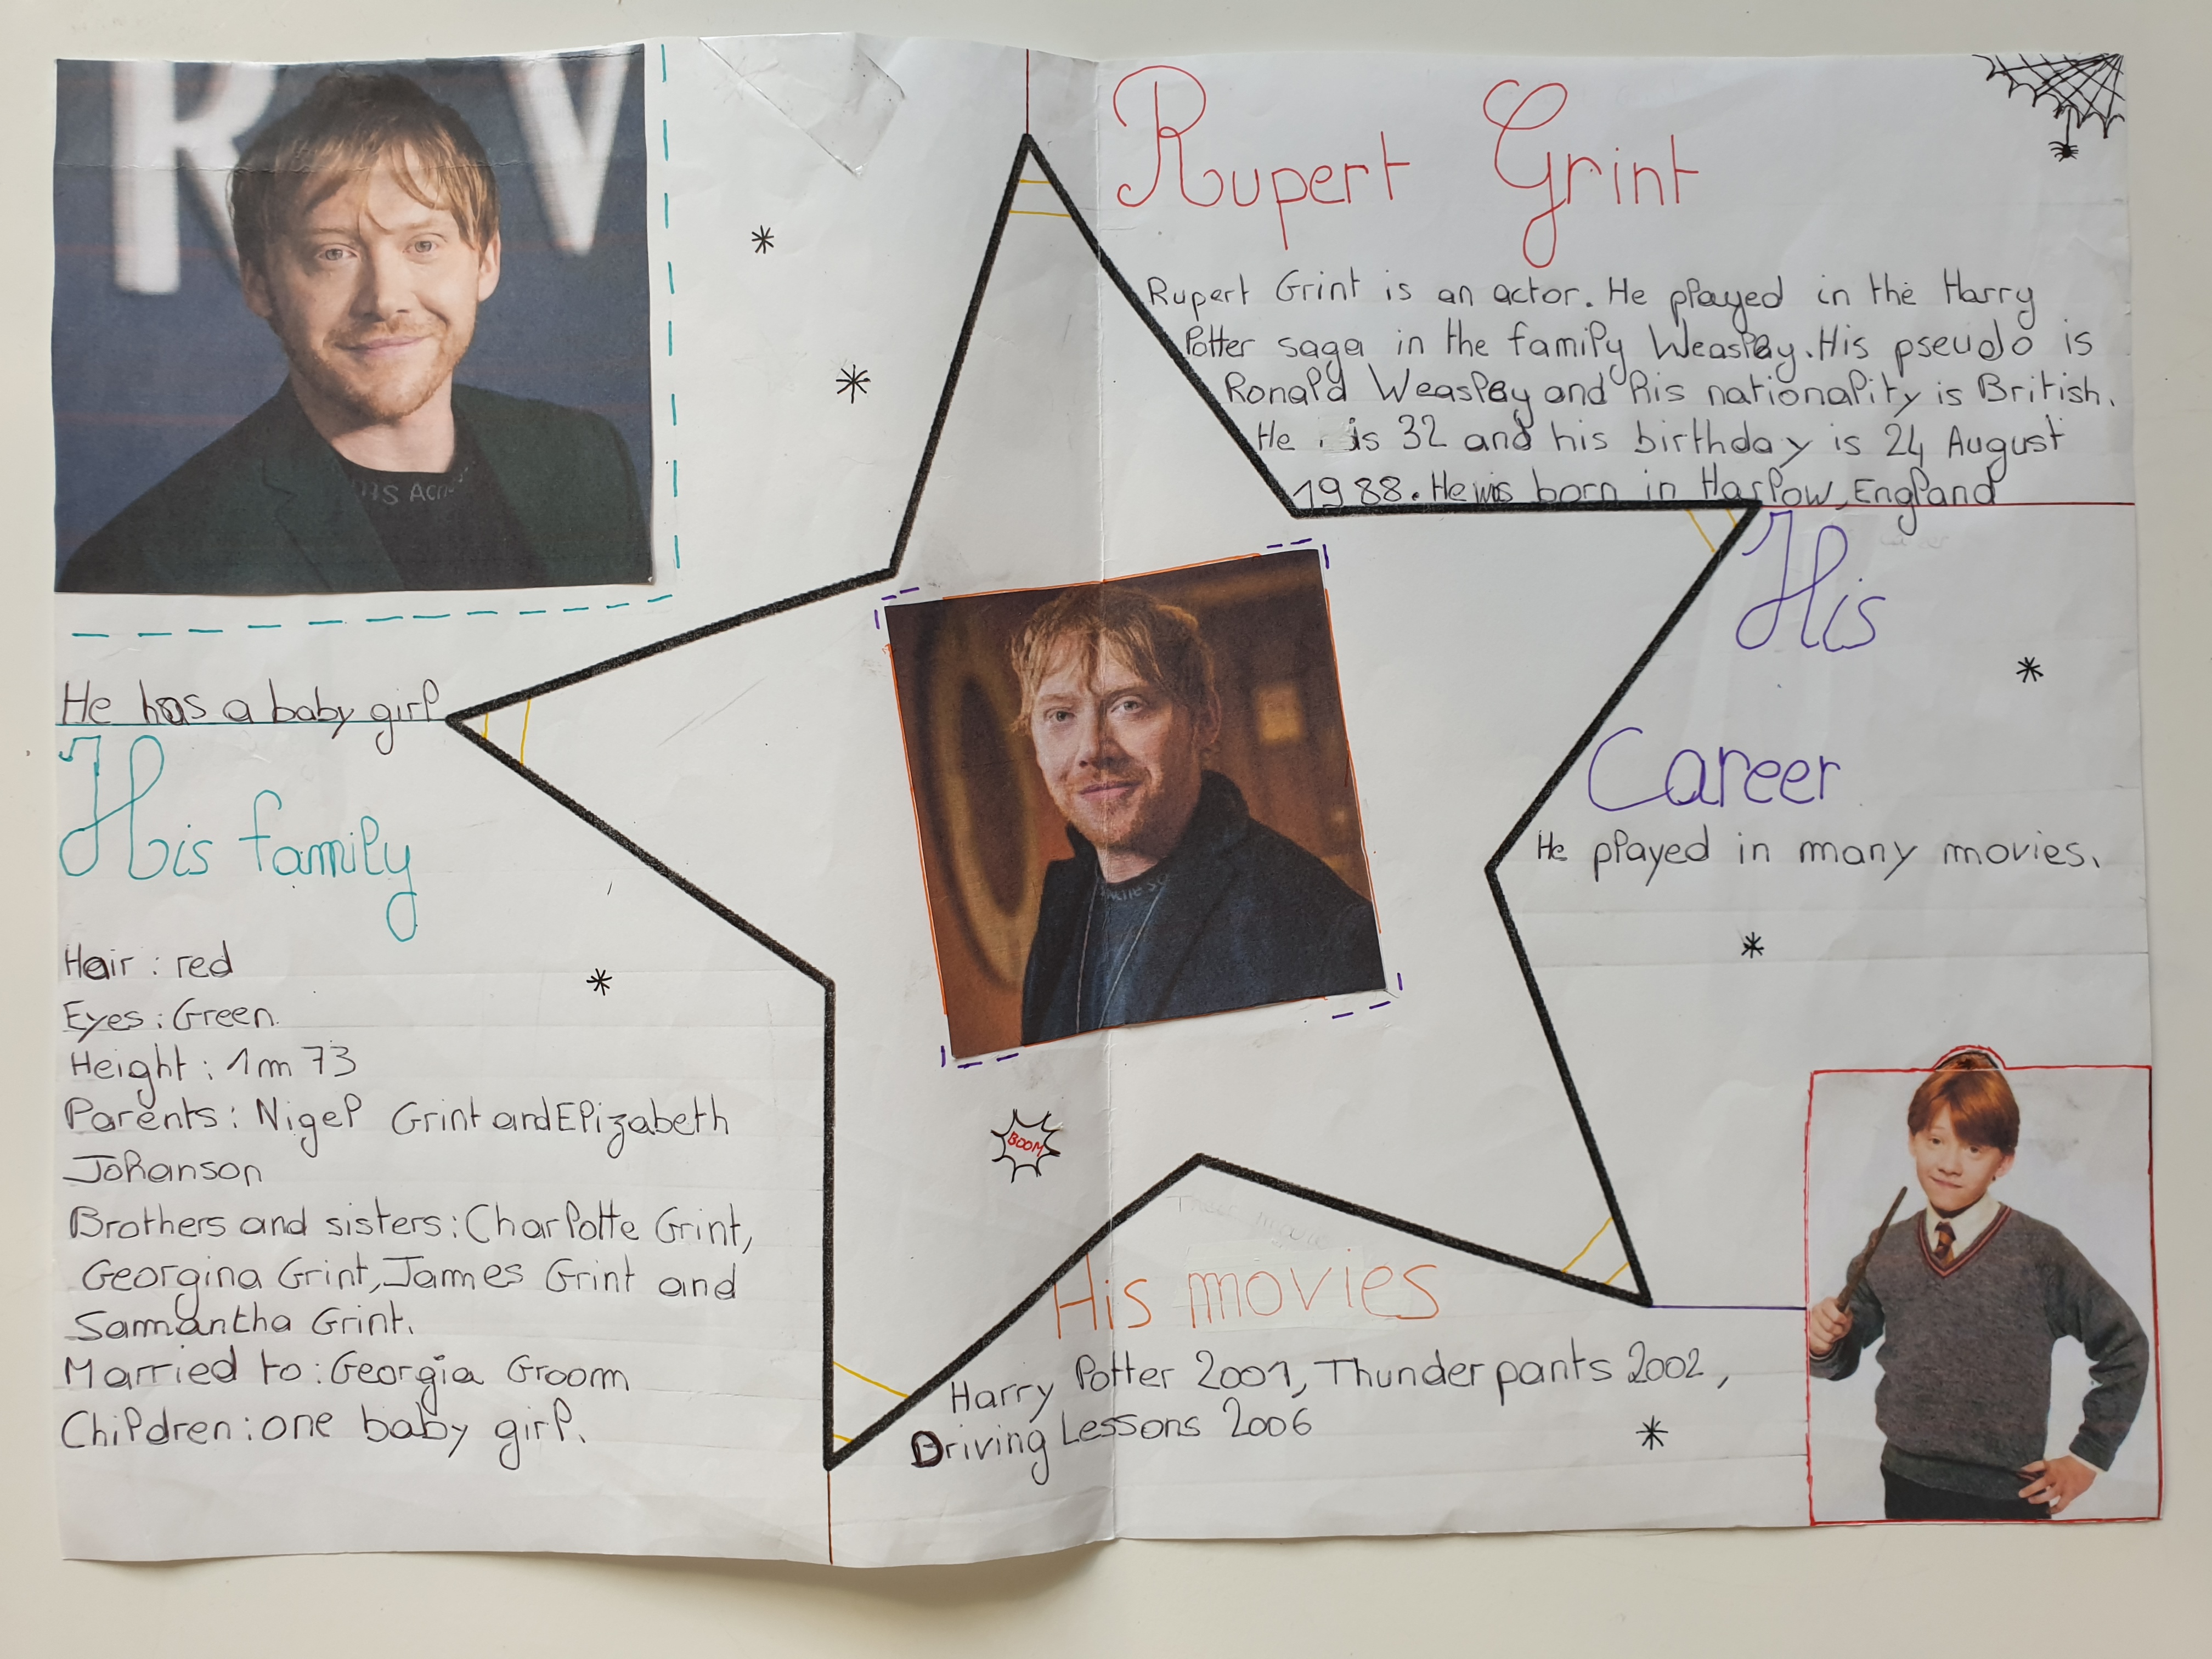 R V
MS ACN
Rupert Grint
Rupert Grint is an actor. He played in the Harry
Potter saga in the family Weasley. His pseudo is
Ronald Weasley and his nationality is British.
He is 32 and his birthday is 24 August
1988. He is born in Harlow, England
His
Career
He played in many movies.
He has a baby girl
His family
Hair : red
Eyes : Green
Height : 1m 73
Parents : Nigel Grint and Elizabeth
Johanson
Brothers and sisters : Charlotte Grint,
Georgina Grint, James Grint and
Samantha Grint.
Married to : Georgia Groom
Children : one baby girl.
BOOM
His movies
Harry Potter 2001, Thunder pants 2002,
Driving Lessons 2006